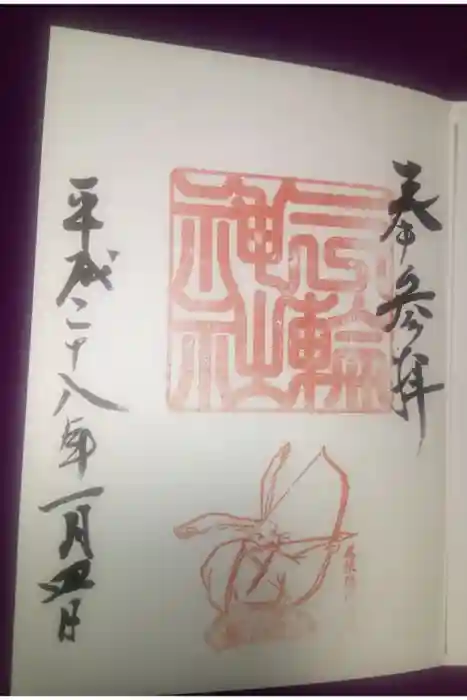 奉参拝
三輪
神社
平成二十八年一月四日